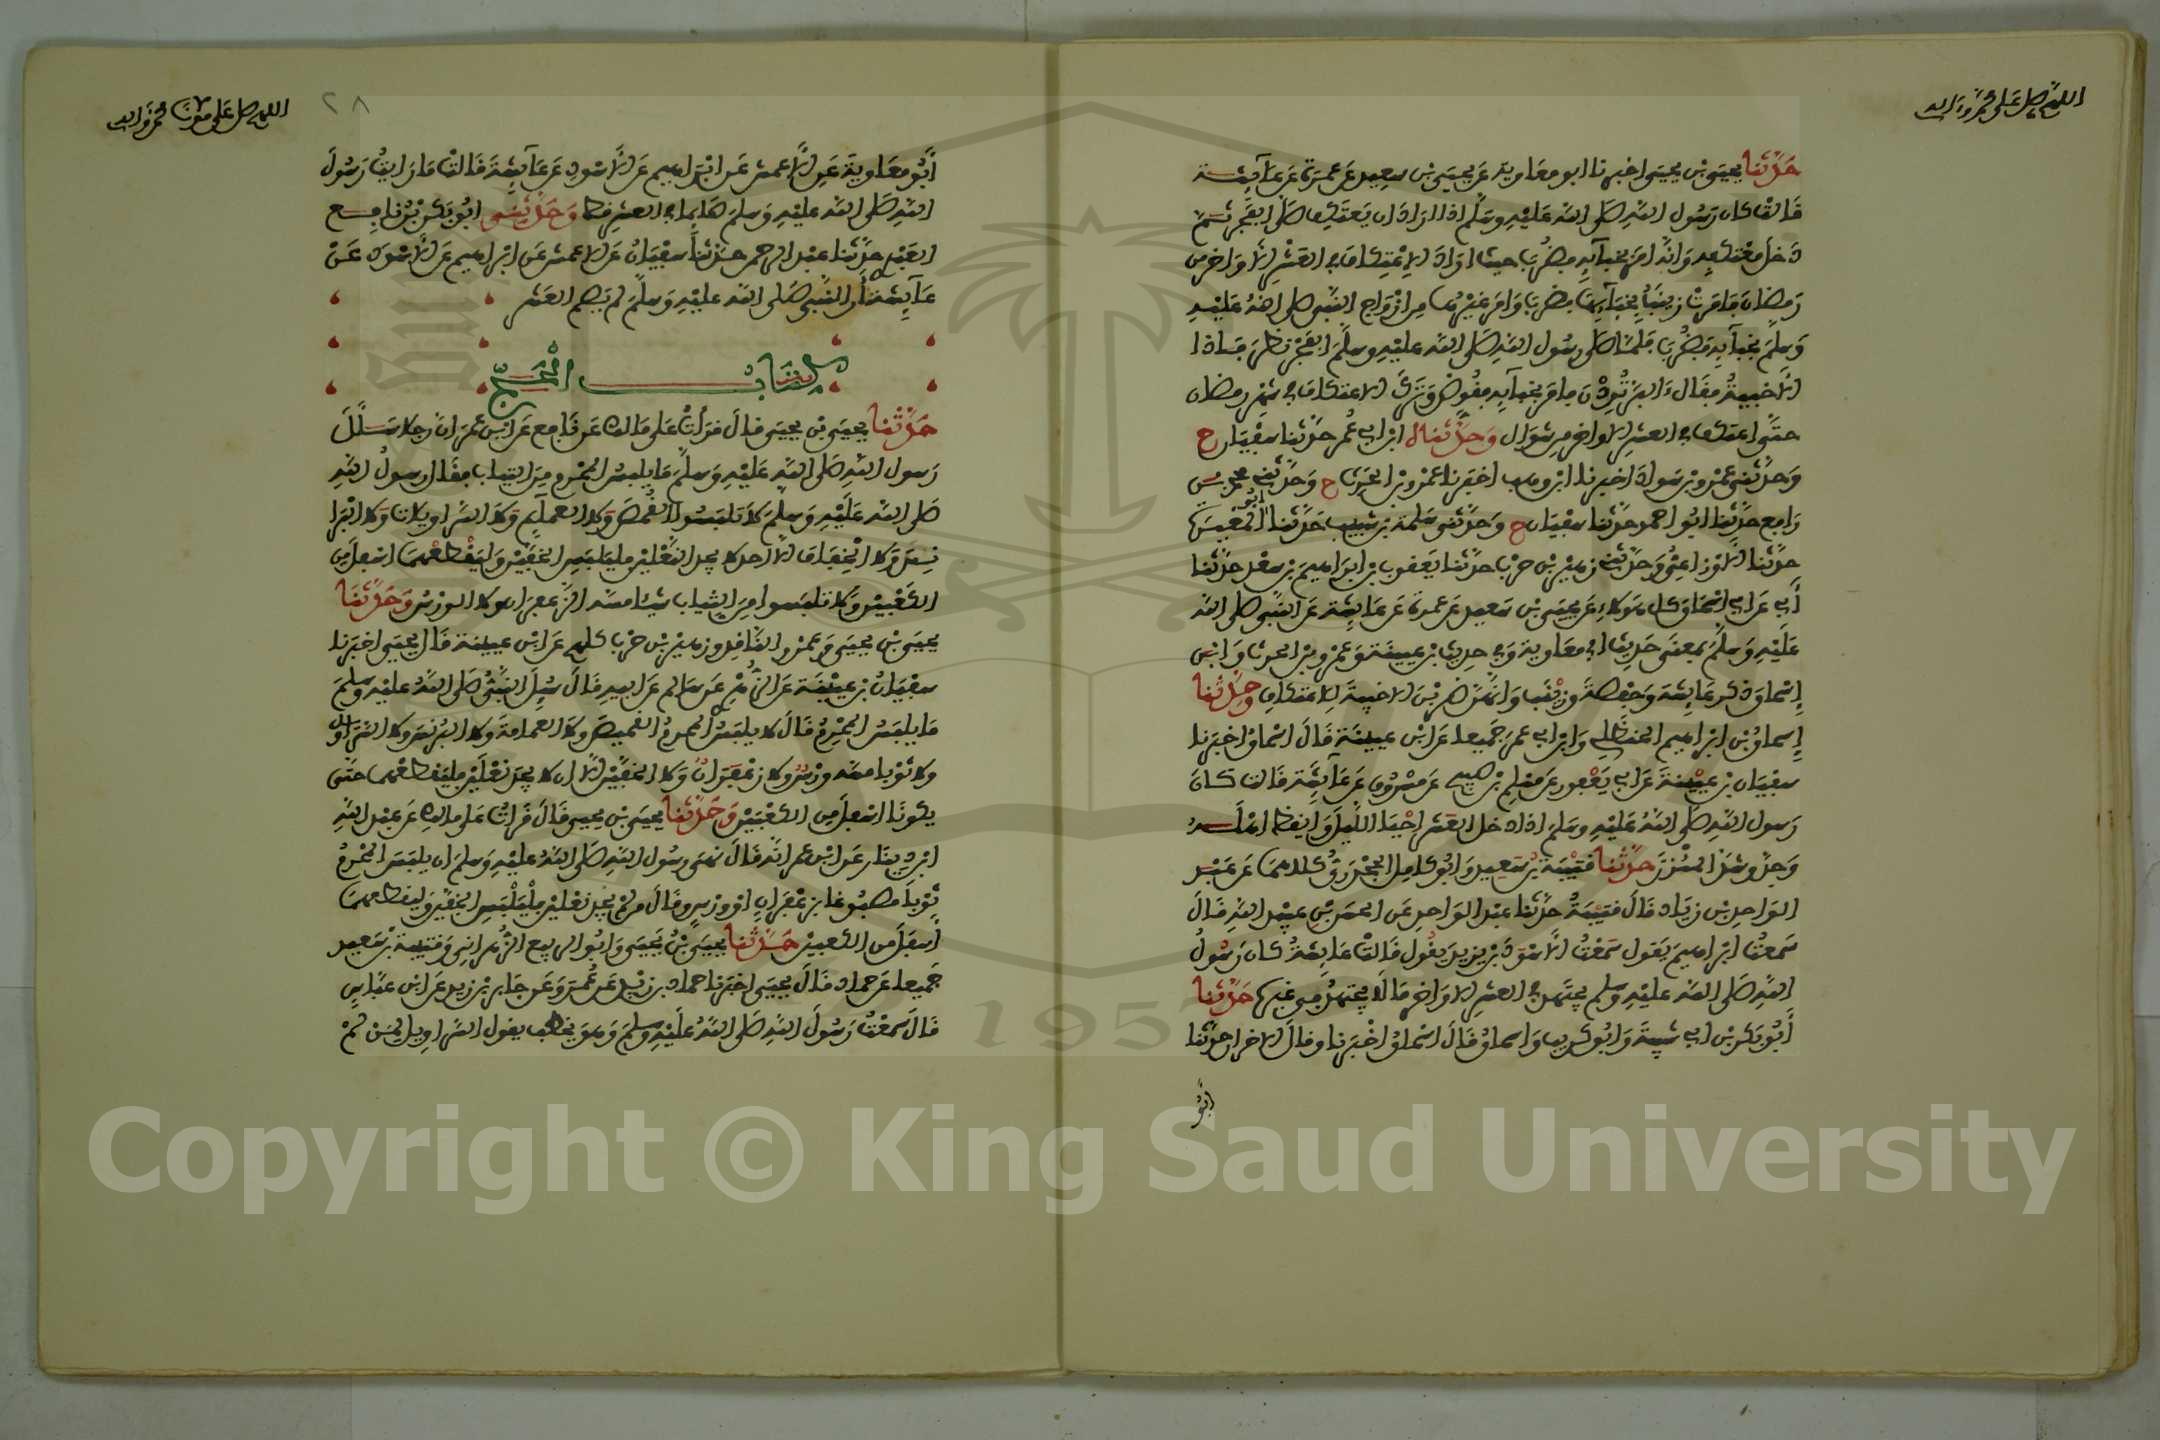 اللهم صل على محمد وءاله
حَدَّثنا يحيى بن يحيى اخبرنا ابو معاوية عن يحيى بن سعيد عن عمرة عن عآئشة
قالت كان رسول الله صلى الله عليه وسلم اذا اراد ان يعتكف صلى الفجر ثم
دخل معتكفه وانه امر بخبآئه فضرب حيث اراد الاعتكاف في العشر الاواخر من
رمضان فامرت زينب بخبآئها فضرب وامر غيرها من ازواج النبي صلى الله عليه
وسلم بخبآئه فضرب فلما صلى رسول الله صلى الله عليه وسلم الفجر نظر فاذا
الاخبية فقال ءالبر تردن فامر بخبآئه فقوض وترك الاعتكاف في شهر رمضان
حتى اعتكف في العشر الاواخر من شوال وحدثناه ابن ابي عمر حدثنا سفيان ح
وحدثني عمرو بن سواد اخبرنا ابن وهب اخبرنا عمرو بن الحرث ح وحدثني محمد بن
رافع حدثنا ابو احمد حدثنا سفيان ح وحدثني سلمة بن شبيب حدثنا ابو المغيرة
حدثنا الاوزاعي وحدثني زهير بن حرب حدثنا يعقوب بن ابراهيم بن سعد حدثنا
أبي عن ابن اسحاق كل هؤلاء عن يحيى بن سعيد عن عمرة عن عائشة عن النبي صلى الله
عليه وسلم بمعنى حديث ابي معاوية وفي حديث ابن عيينة وعمرو بن الحرث وابن
إسحاق ذكر عائشة وحفصة وزينب وانهن ضربن الاخبية للاعتكاف وحدثنا
إسحاق بن ابراهيم الحنظلي وابن ابي عمر جميعا عن ابن عيينة قال اسحاق اخبرنا
سفيان بن عيينة عن ابي يعفور عن مسلم بن صبيح عن مسروق عن عآئشة قالت كان
رسول الله صلى الله عليه وسلم اذا دخل العشر احيا الليل وايقظ اهله
وجد وشد المئزر حدثنا قتيبة بن سعيد وابو كامل الجحدري كلاهما عن عبد
الواحد بن زياد قال قتيبة حدثنا عبد الواحد عن الحسن بن عبيد الله قال
سمعت ابراهيم يقول سمعت الاسود بن يزيد يقول قالت عائشة كان رسول
الله صلى الله عليه وسلم يجتهد في العشر الاواخر ما لا يجتهد في غيرها حدثنا
أبو بكر بن ابي شيبة وابو كريب واسحاق قال اسحاق اخبرنا وقال الاخران حدثنا
ابو
اللهم صل على مولانا محمد وءاله
٢٨
أبو معاوية عن الاعمش عن ابراهيم عن الاسود عن عآئشة قالت ما رايت رسول
الله صلى الله عليه وسلم صايما في العشر قط وحدثني ابو بكر بن نافع
العبدي حدثنا عبد الرحمن حدثنا سفيان عن الاعمش عن ابراهيم عن الاسود عن
عآئشة أن النبي صلى الله عليه وسلم لم يصم العشر
كتاب الحج
حدثنا يحيى بن يحيى قال قرأت على مالك عن نافع عن ابن عمر ان رجلا سأل
رسول الله صلى الله عليه وسلم ما يلبس المحرم من الثياب فقال رسول الله
صلى الله عليه وسلم لا تلبسوا القمص ولا العمآئم ولا السراويلات ولا البرا
نس ولا الخفاف الا احد لا يجد النعلين فليلبس الخفين وليقطعهما اسفل من
الكعبين ولا تلبسوا من الثياب شيئا مسه الزعفران ولا الورس وحدثنا
يحيى بن يحيى وعمرو الناقد وزهير بن حرب كلهم عن ابن عيينة قال يحيى اخبرنا
سفيان بن عيينة عن الزهري عن سالم عن ابيه قال سئل النبي صلى الله عليه وسلم
ما يلبس المحرم قال لا يلبس المحرم القميص ولا العمامة ولا البرنس ولا السراويل
ولا ثوبا مسه ورس ولا زعفران ولا الخفين الا ان لا يجد نعلين فليقطعهما حتى
يكونا اسفل من الكعبين وحدثنا يحيى بن يحيى قال قرات على مالك عن عبد الله
ابن دينار عن ابن عمر انه قال نهى رسول الله صلى الله عليه وسلم ان يلبس المحرم
ثوبا مصبوغا بزعفران او ورس وقال من لم يجد نعلين فليلبس الخفين وليقطعهما
أسفل من الكعبين حدثنا يحيى بن يحيى وابو الربيع الزهراني وقتيبة بن سعيد
جميعا عن حماد قال يحيى اخبرنا حماد بن زيد عن عمرو عن جابر بن زيد عن ابن عباس
قال سمعت رسول الله صلى الله عليه وسلم وهو يخطب يقول السراويل لمن لم
1957
Copyright © King Saud University